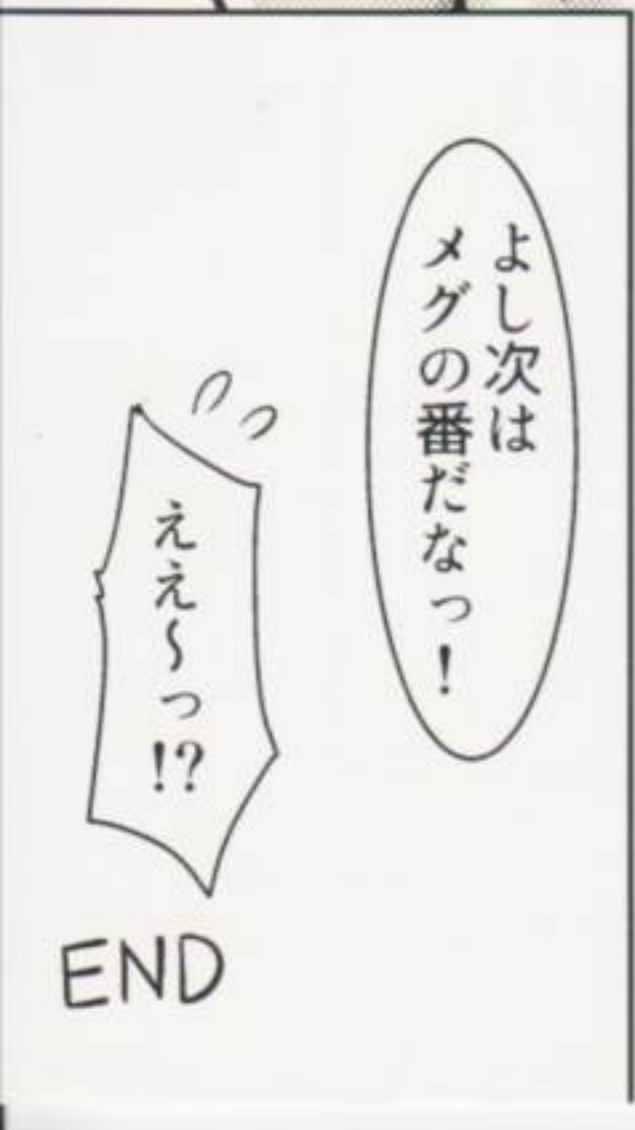 よし次は
メグの番だなっ！
ええ～っ!?
END